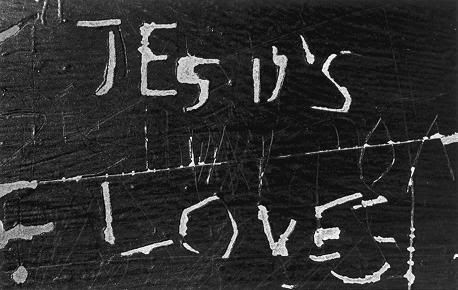 JESU'S
LOVES